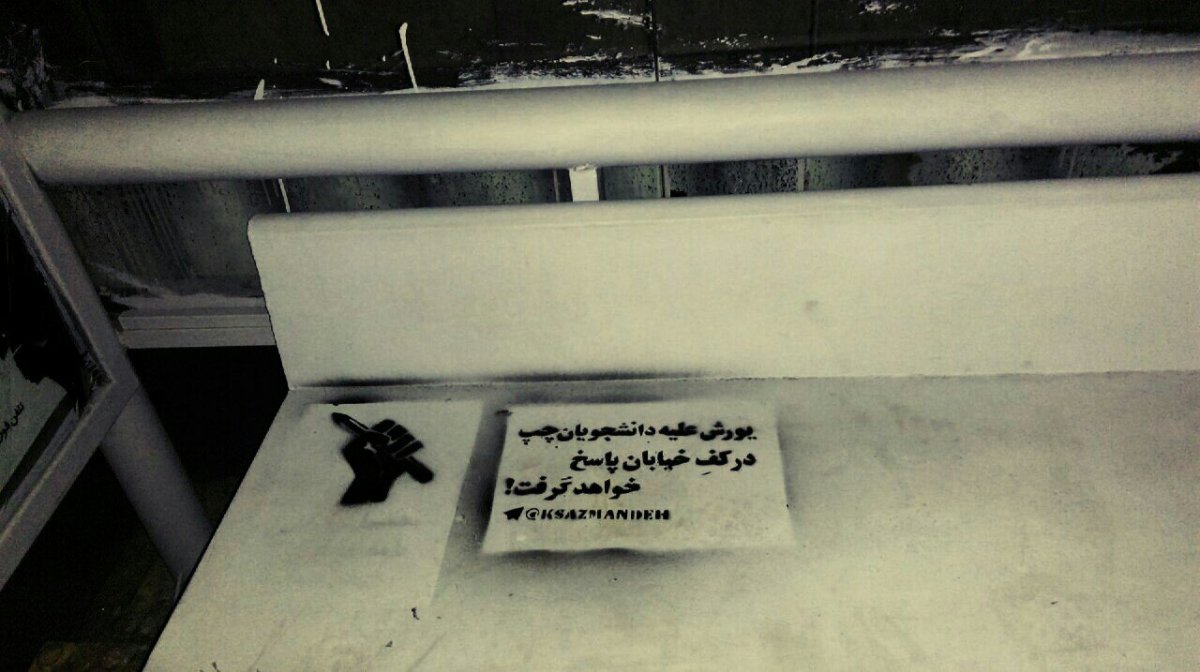 یورش علیه دانشجویان چپ
در کفِ خیابان پاسخ
خواهد گرفت!
@KSAZMANDEH